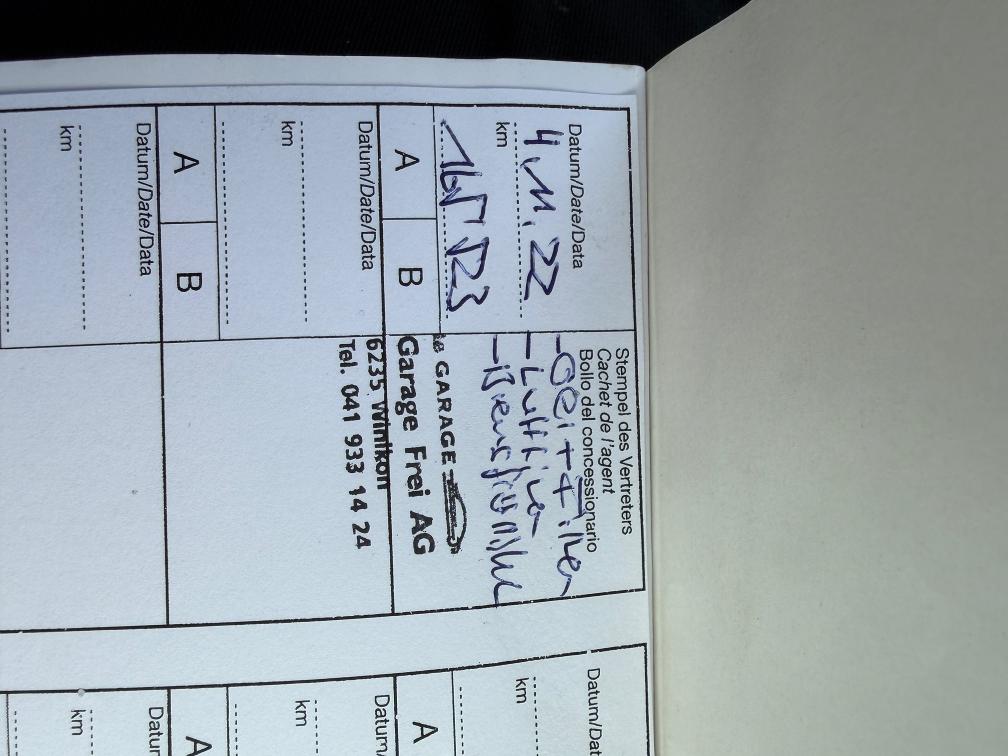 Datum/Date/Data
4.11.22
km
165 523
A B
Stempel des Vertreters
Cachet de l'agent
Bollo del concessionario
- Oel + Filter
- Luftfilter
- Bremsflüssigk
le GARAGE
Garage Frei AG
6235 Winikon
Tel. 041 933 14 24
Datum/Date/Data
km
A B
Datum/Date/Data
km
Datum/Dat
km
A
Datum/
km
A
Datur
km